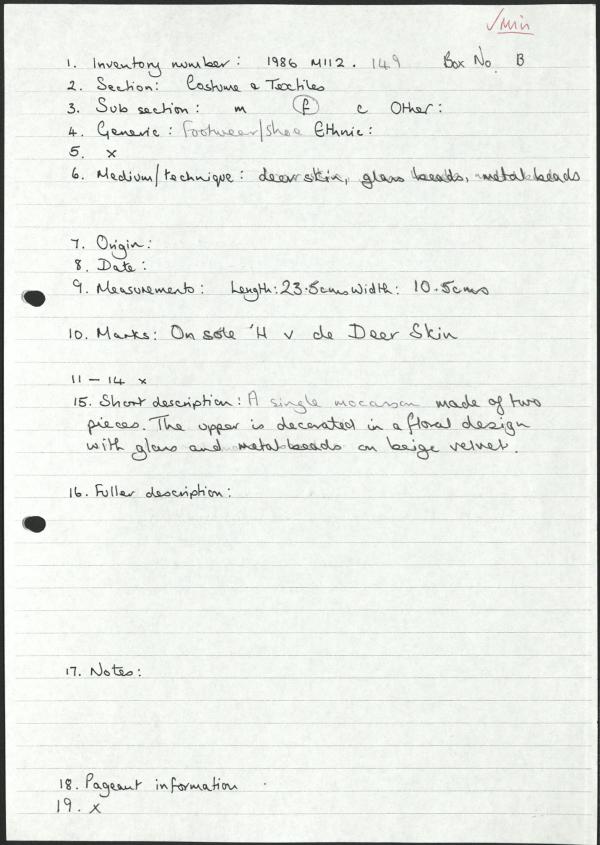 ✓ Min
1. Inventory number: 1986 M112. 149 Box No. B
2. Section: Costume & Textiles
3. Sub section: m f c Other:
4. Generic: Footwear/shoe Ethnic:
5. x
6. Medium/technique: deer skin, glass beads, metal beads
7. Origin:
8. Date:
9. Measurements: Length: 23.5cms Width: 10.5cms
10. Marks: On sole 'H v de Deer Skin
11 - 14 x
15. Short description: A single mocassan made of two
pieces. The upper is decorated in a floral design
with glass and metal beads on beige velvet.
16. Fuller description:
17. Notes:
18. Pageant information
19. x